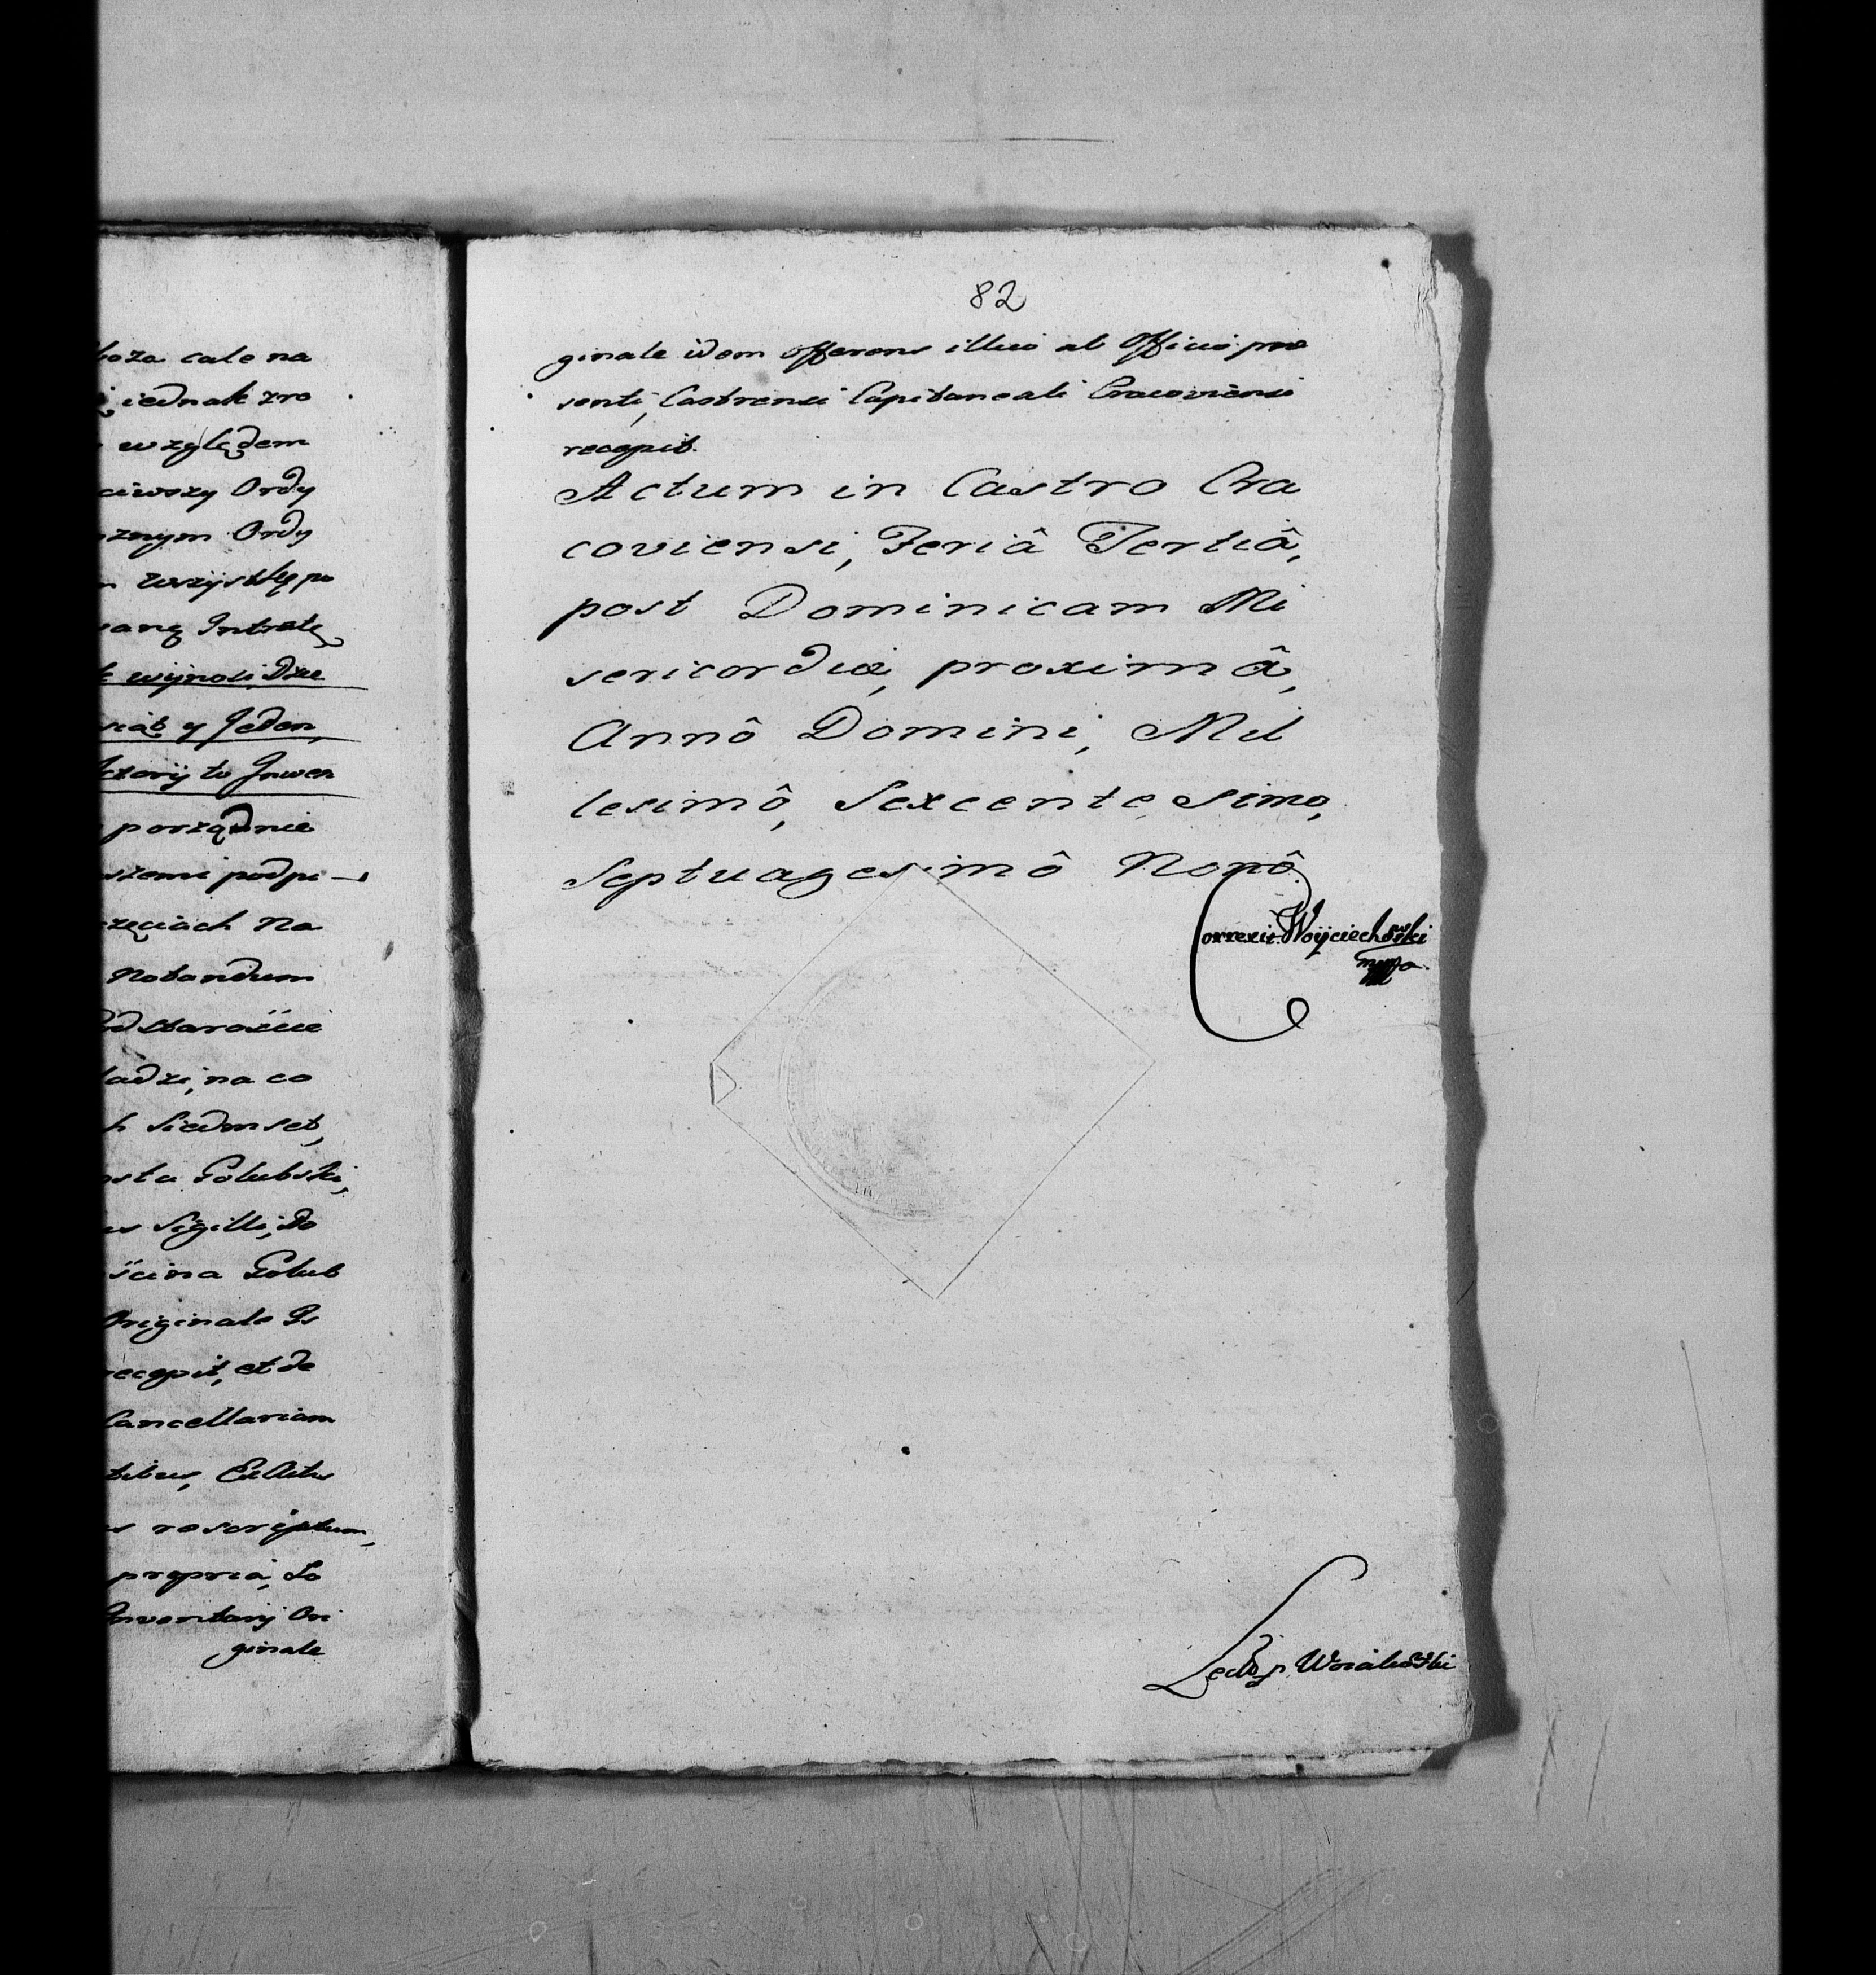 boza cale na
iednak zro
względem
ciwszy Ordy
znym Ordy
wszystkę po
waną Intratę
wijnosi Dwe
siąt y Jeden,
ktorij to Inwen
porządnie
szemi podpi
zęciach Na
Notandum
Staroście
ladzi, na co
h Siedmset,
osta Golubski,
us Sigilli, Do
ścina Golub
Originale Is
recepit, et de
Cancellariam
tibus, Ex Actis
s rescriptum,
propria, Lo
Inventarij Ori
ginale
82
ginale idem offerens illico ab Officio præ
senti, Castrensi Capitaneali Cracoviensi
recepit.
Actum in Castro Cra
coviensi, Feriâ Tertiâ,
post Dominicam Mi
sericordiæ, proximâ,
Annô Domini, Mil
lesimô, Sexcentesimo,
Septuagesimô Nonô.
Correxit Woyciechowski
mppa.